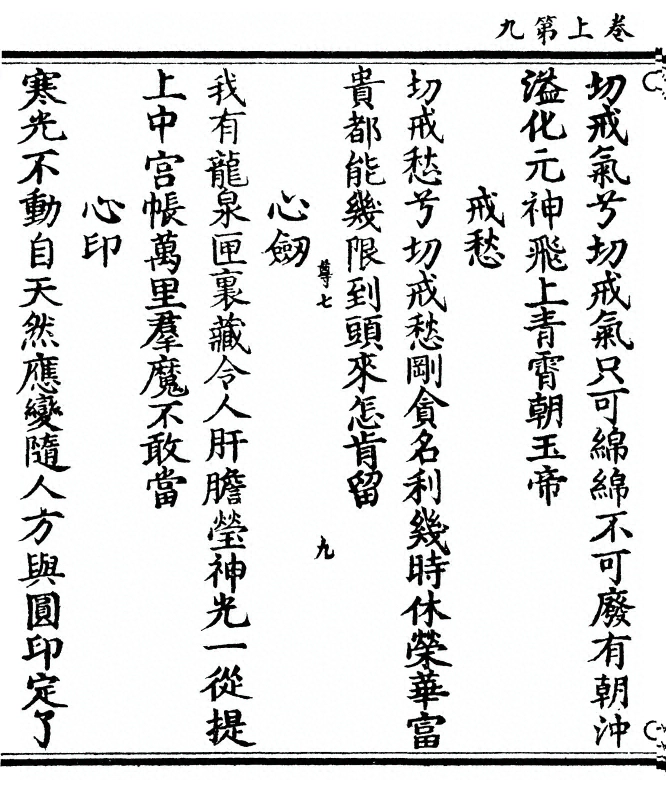 卷上第九
切戒氣兮切戒氣只可綿綿不可廢有朝沖
溢化元神飛上青霄朝玉帝
戒愁
切戒愁兮切戒愁剛貪名利幾時休榮華富
貴都能幾限到頭來怎肯留
尊七
九
心劒
我有龍泉匣裏藏令人肝膽瑩神光一從提
上中宮帳萬里羣魔不敢當
心印
寒光不動自天然應變隨人方與圓印定了